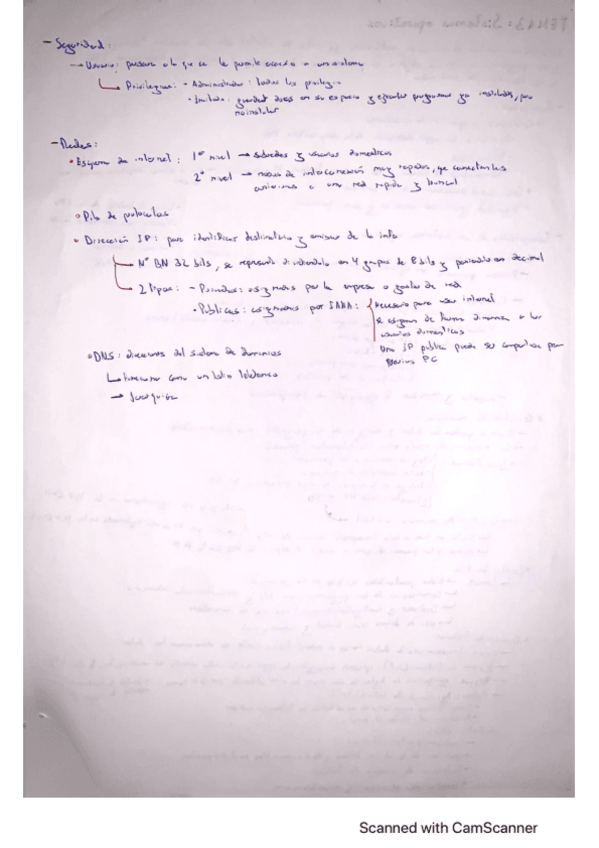 - Seguridad:
→ Usuario: persona a la que se le permite acceso a un sistema
Privilegios: - Administrador: todos los privilegios
• Limitado: guardar datos en su espacio y ejecutar programas ya instalados, pero
no instalar
- Redes:
• Esquema de internet: 1er nivel → subredes y usuarios domesticos
2º nivel → nodos de interconexión muy rapidos, que conectan los
a una red rapida y troncal
• Pila de protocolos
• Dirección IP: para identificar destinatario y emisor de la info
Nº BN 32 bits, se representa dividiendolo en 4 grupos de 8 bits y poniendolo en decimal
2 tipos: - Privadas: asignadas por la empresa o gestor de red
• Publicas: asignadas por IANA: Necesario para usar internet
Se asignan de forma dinamica a los
usuarios domesticos
Una IP publica puede ser compartida por
varios PC
• DNS: direcciones del sistema de dominios
Funciona como un listin telefonico
→ Jerarquico
Scanned with CamScanner